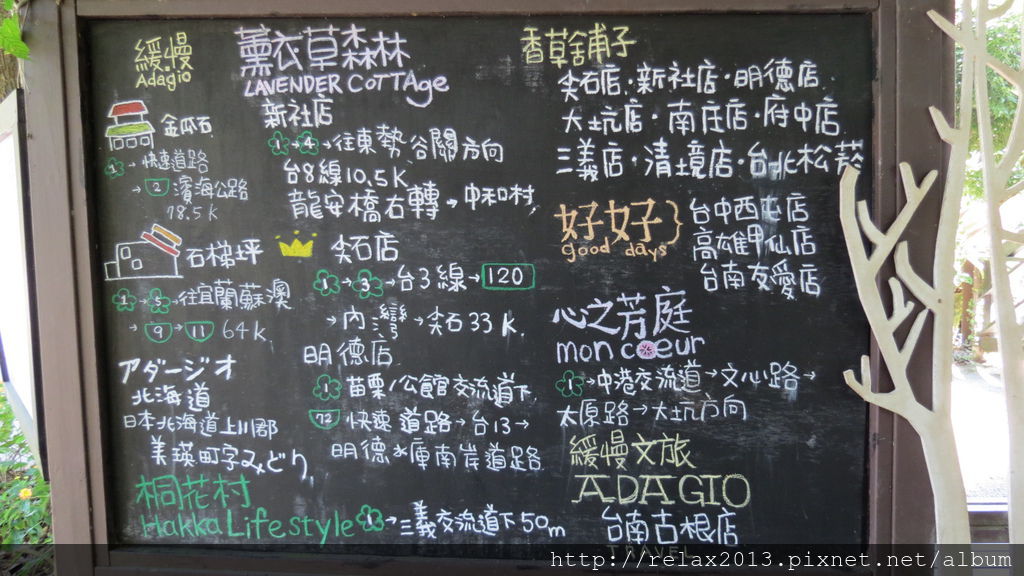 緩慢
Adagio
金瓜石
1 → 快速道路
→ 2 濱海公路
78.5K
石梯坪
1 → 5 → 往宜蘭蘇澳
→ 9 → 11 64K
アダージオ
北海道
日本北海道上川郡
美瑛町字みどり
桐花村
Hakka Life style 1 → 三義交流道下 50m
薰衣草森林
LAVENDER COTTAge
新社店
1 → 4 → 往東勢、谷關方向
台8線 10.5K
龍安橋右轉 → 中和村
尖石店
1 → 3 → 台3線 → 120
→ 內灣 → 尖石 33K
明德店
1 苗栗/公館交流道下
72 快速道路 → 台13 →
明德水庫南岸道路
香草舖子
尖石店·新社店·明德店
大坑店·南庄店·府中店
三義店·清境店·台北松菸
好好 } 台中西屯店
good days 高雄甲仙店
台南友愛店
心之芳庭
mon cœur
1 → 中港交流道 → 文心路 →
太原路 → 大坑方向
緩慢文旅
ADAGIO
台南古根店
TRAVEL
http://relax2013.pixnet.net/album